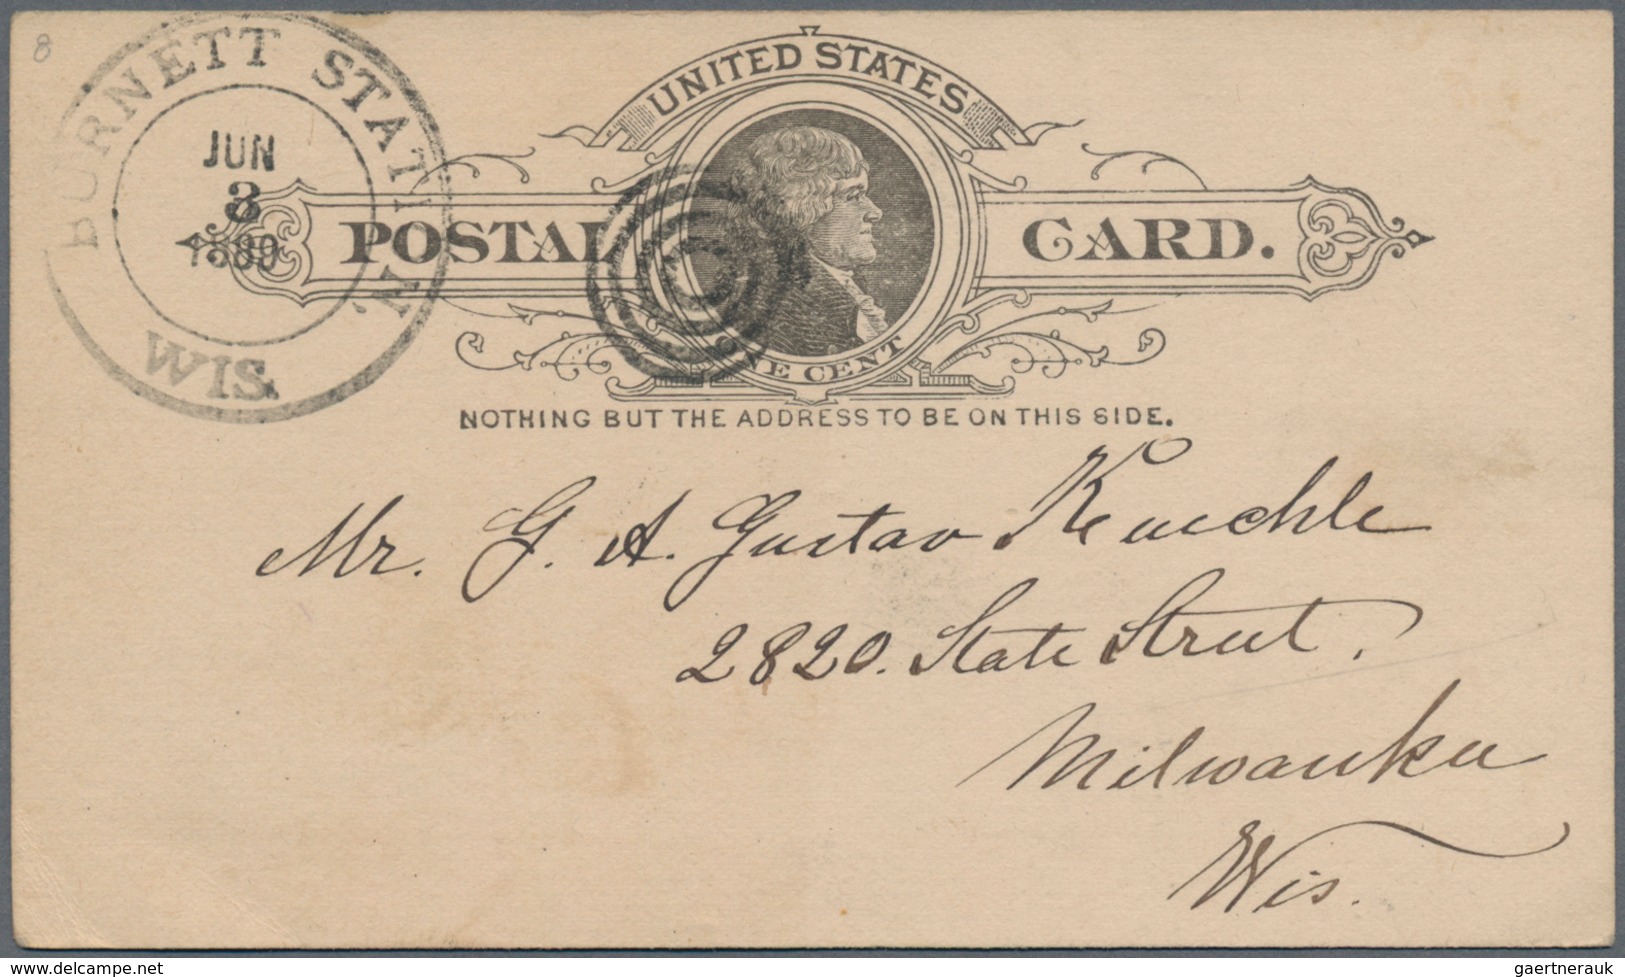 8
BURNETT STATION,
JUN
3
1889
WIS.
UNITED STATES
POSTAL CARD.
ONE CENT
NOTHING BUT THE ADDRESS TO BE ON THIS SIDE.
Mr. G. A. Gustav Kuechle
2820. State Street.
Milwaukee
Wis.
www.delcampe.net
gaertnerauk